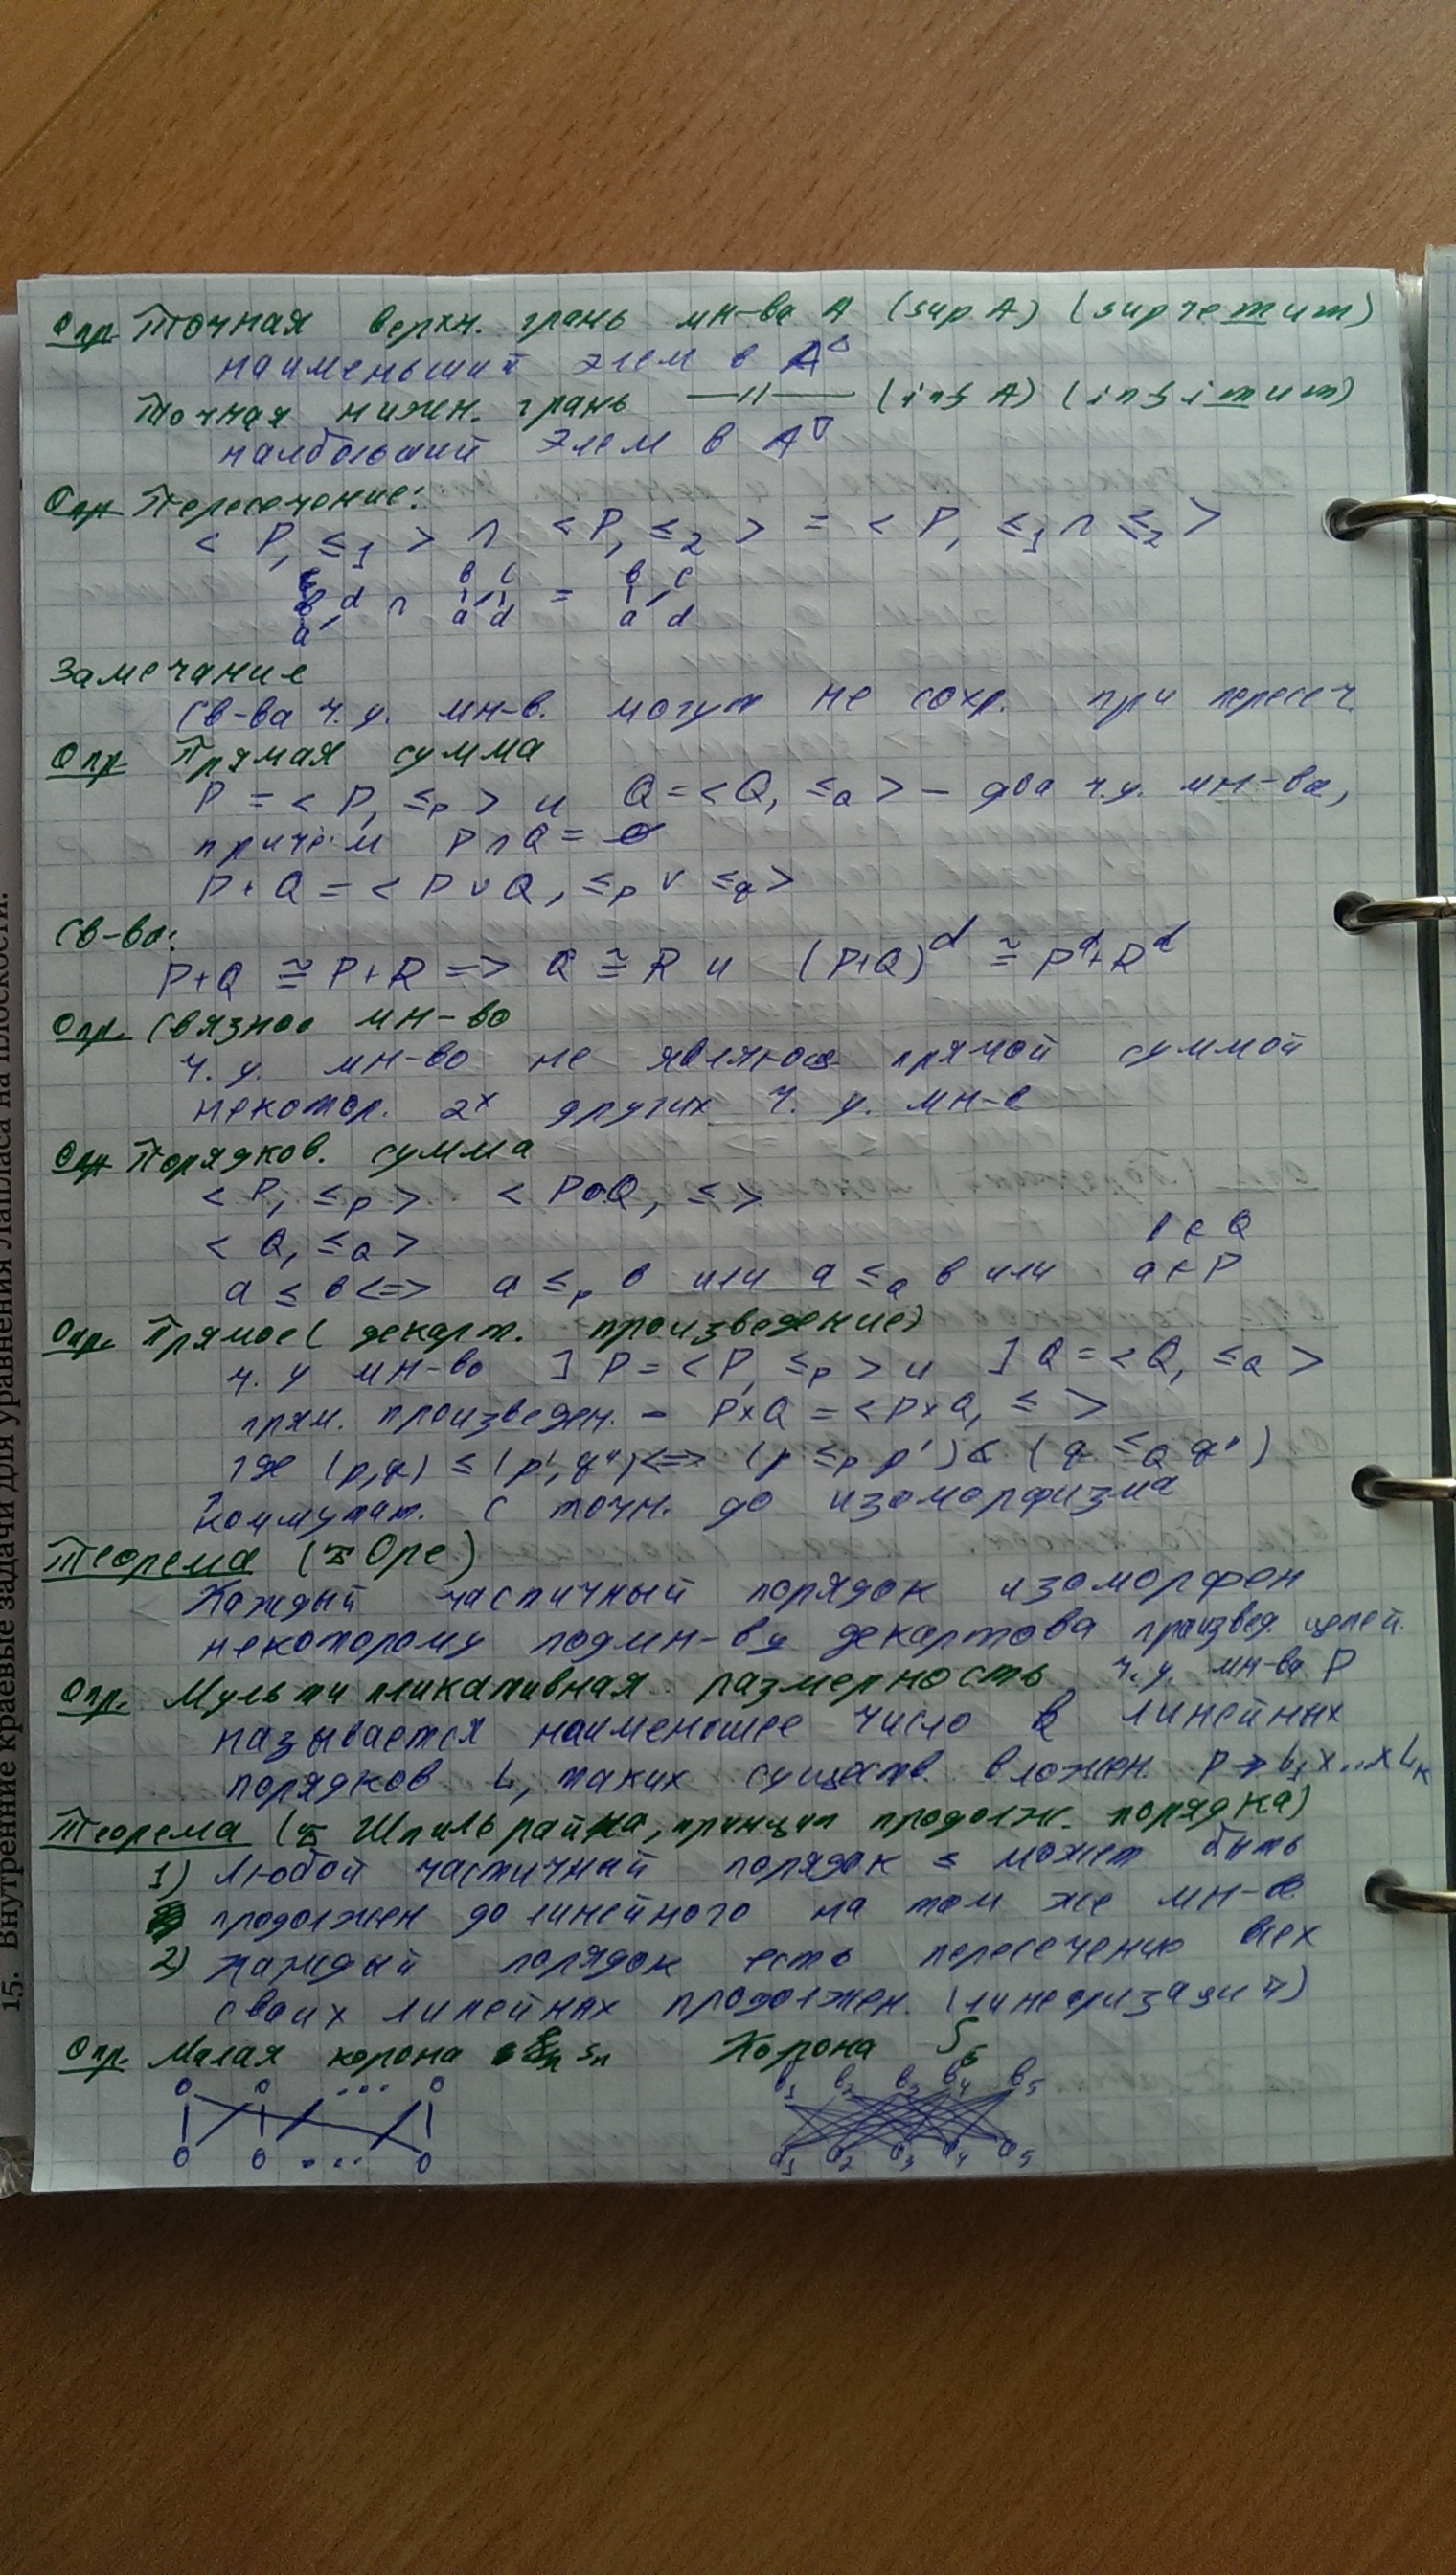 Опр Точная верхн. грань мн-ва A (sup A) (supremum)
наименьший элем в A^Δ
Точная нижн. грань —//— (inf A) (infimum)
наибольший элем в A^∇
Опр Пересечение:
< P, ≤₁ > ∩ < P, ≤₂ > = < P, ≤₁ ∩ ≤₂ >
c b c b c
b d ∩ a d = a d
a
Замечание
Св-ва ч. у. мн-в. могут не сохр. при пересеч.
Опр Прямая сумма
P = < P, ≤_P > и Q = < Q, ≤_Q > – два ч.у. мн-ва,
причём P ∩ Q = ∅
P + Q = < P ∪ Q, ≤_P ∪ ≤_q >
Св-во:
P+Q ≅ P+R => Q ≅ R и (P+Q)^d ≅ P^d+R^d
Опр. Связное мн-во
ч. у. мн-во не являющ. прямой суммой
некотор. 2х других ч. у. мн-в
Опр Порядков. сумма
< P, ≤_P > < P⊕Q, ≤ >
< Q, ≤_Q >
b ∈ Q
a ≤ b <=> a ≤_P b или a ≤_Q b или a ∈ P
Опр. Прямое (декарт. произведение)
ч. у мн-во ] P = < P, ≤_P > и ] Q = < Q, ≤_Q >
прям. произведен. – P×Q = < P×Q, ≤ >
где (p,q) ≤ (p', q'') <=> (p ≤_P p') & (q ≤_Q q'')
Коммутат. с точн. до изоморфизма
Теорема (т Оре)
Каждый частичный порядок изоморфен
некоторому подмн-ву декартова произвед. цепей.
Опр. Мультипликативная размерность ч. у. мн-ва P
называется наименьшее число k линейных
порядков L, таких существ. вложен. P → L₁ x...x L_k
Теорема (т Шпильрайна, принцип продолж. порядка)
1) Любой частичный порядок ≤ может быть
продолжен до линейного на том же мн-ве
2) Каждый порядок есть пересечение всех
своих линейных продолжен. (линеаризаций)
Опр. Малая корона s_n Корона S₅
b₁ b₂ b₃ b₄ b₅
...
...
a₁ a₂ a₃ a₄ a₅
15. Внутренние краевые задачи для уравнения Лапласа на плоскости.